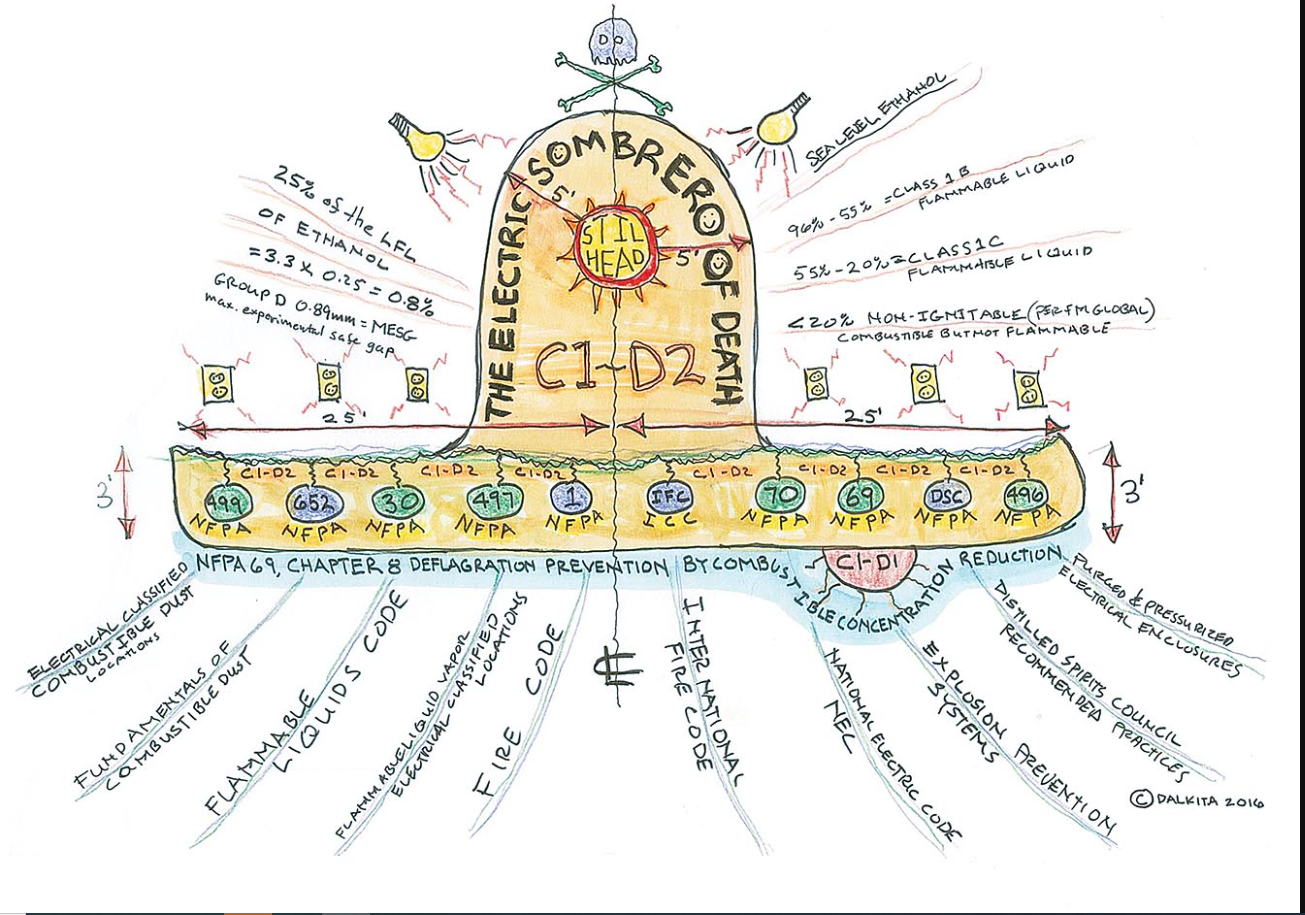 THE ELECTRIC SOMBRERO OF DEATH
5'
STIL
HEAD
5'
C1-D2
25% of the LFL
OF ETHANOL
= 3.3 X 0.25 = 0.8%
GROUP D 0.89mm = MESG
max. experimental safe gap
SEA LEVEL ETHANOL
96% - 55% = CLASS 1 B
FLAMMABLE LIQUID
55% - 20% = CLASS 1C
FLAMMABLE LIQUID
<20% NON-IGNITABLE (PER FM GLOBAL)
COMBUSTIBLE BUT NOT FLAMMABLE
25'
25'
3'
3'
C1-D2
C1-D2
C1-D2
C1-D2
C1-D2
C1-D2
C1-D2
C1-D2
499
NFPA
652
NFPA
30
NFPA
497
NFPA
1
NFPA
IFC
ICC
70
NFPA
69
NFPA
DSC
NFPA
496
NFPA
C1-D1
NFPA 69, CHAPTER 8 DEFLAGRATION PREVENTION BY COMBUSTIBLE CONCENTRATION REDUCTION
ELECTRICAL CLASSIFIED
COMBUSTIBLE DUST
LOCATIONS
FUNDAMENTALS OF
COMBUSTIBLE DUST
FLAMMABLE
LIQUIDS CODE
FLAMMABLE LIQUID VAPOR
ELECTRICAL CLASSIFIED
LOCATIONS
FIRE CODE
INTERNATIONAL
FIRE CODE
NATIONAL ELECTRIC CODE
NEC
EXPLOSION PREVENTION
SYSTEMS
DISTILLED SPIRITS COUNCIL
RECOMMENDED PRACTICES
PURGED & PRESSURIZED
ELECTRICAL ENCLOSURES
© DALKITA 2016